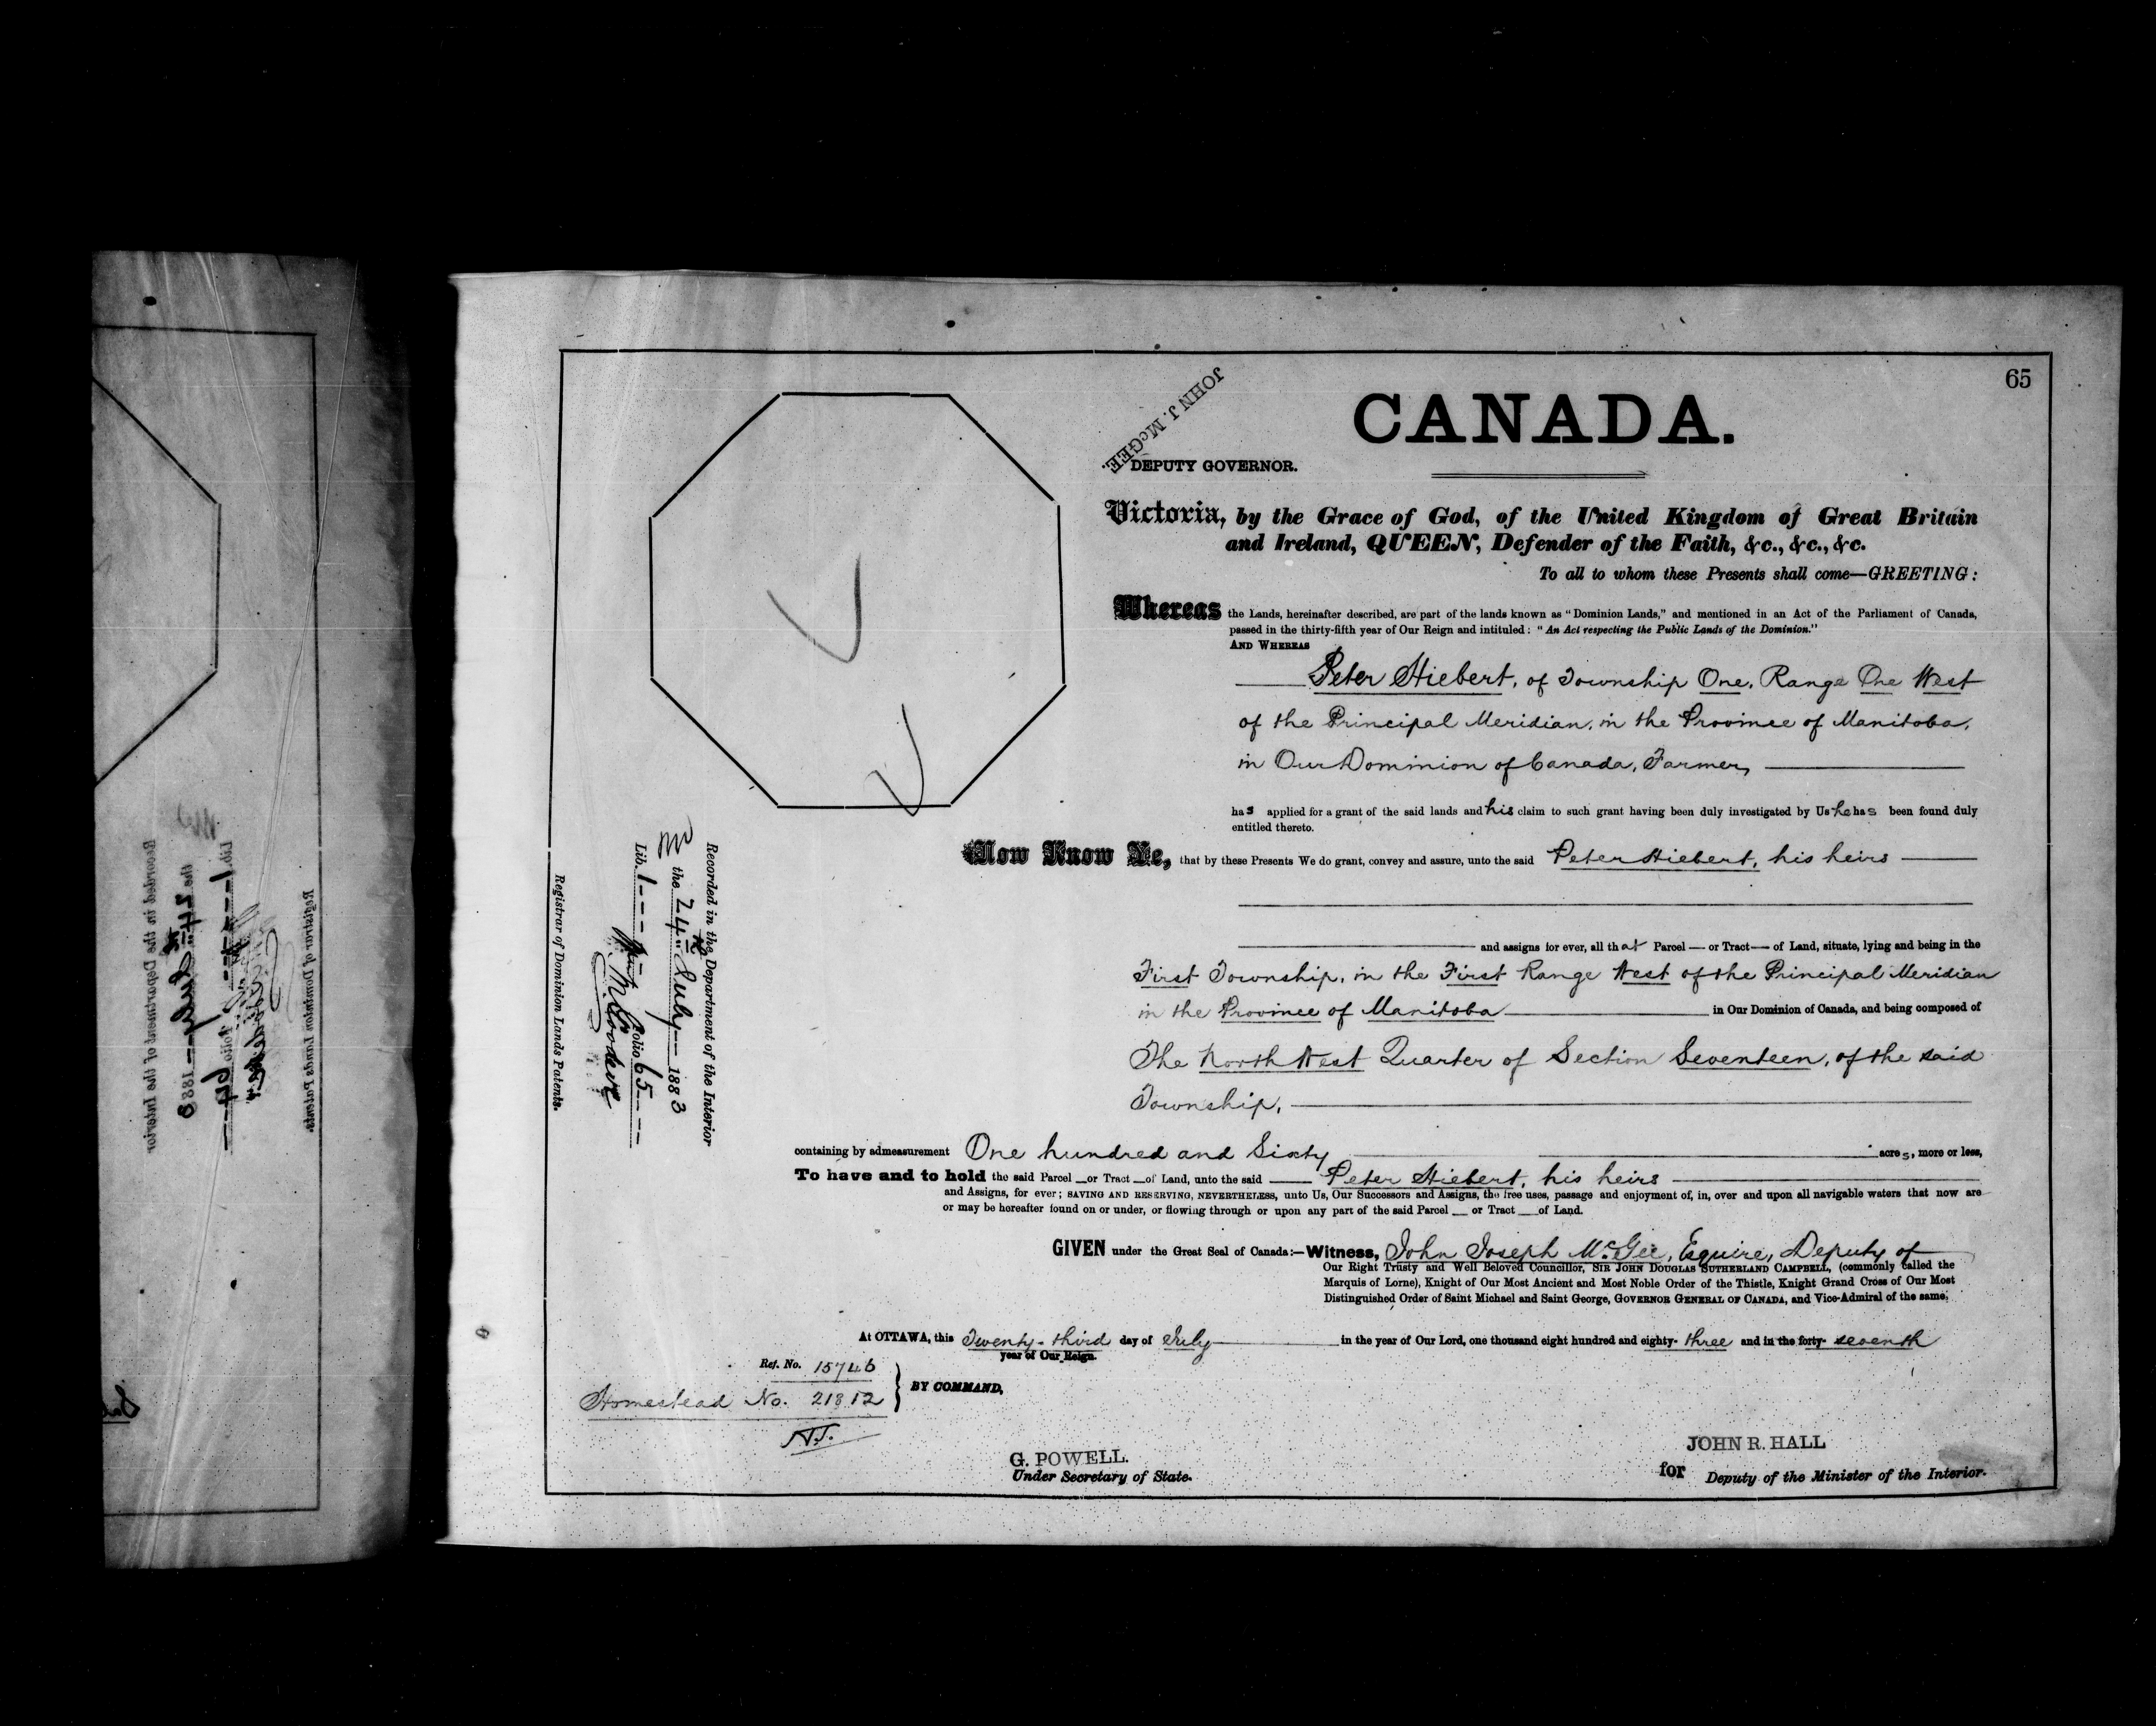 65
CANADA.
JOHN J. McGEE.
DEPUTY GOVERNOR.
Victoria, by the Grace of God, of the United Kingdom of Great Britain
and Ireland, QUEEN, Defender of the Faith, &c., &c., &c.
To all to whom these Presents shall come—GREETING:
Whereas the Lands, hereinafter described, are part of the lands known as "Dominion Lands," and mentioned in an Act of the Parliament of Canada,
passed in the thirty-fifth year of Our Reign and intituled: "An Act respecting the Public Lands of the Dominion."
AND WHEREAS
Peter Hiebert, of Township One, Range One West
of the Principal Meridian, in the Province of Manitoba,
in Our Dominion of Canada, Farmer,
has applied for a grant of the said lands and his claim to such grant having been duly investigated by Us he has been found duly
entitled thereto.
Now Know Ye, that by these Presents We do grant, convey and assure, unto the said Peter Hiebert, his heirs
and assigns for ever, all that Parcel — or Tract — of Land, situate, lying and being in the
First Township, in the First Range West of the Principal Meridian
in the Province of Manitoba in Our Dominion of Canada, and being composed of
The North West Quarter of Section Seventeen, of the said
Township,
containing by admeasurement One hundred and Sixty acres, more or less,
To have and to hold the said Parcel — or Tract — of Land, unto the said Peter Hiebert, his heirs
and Assigns, for ever; SAVING AND RESERVING, NEVERTHELESS, unto Us, Our Successors and Assigns, the free uses, passage and enjoyment of, in, over and upon all navigable waters that now are
or may be hereafter found on or under, or flowing through or upon any part of the said Parcel — or Tract — of Land.
GIVEN under the Great Seal of Canada:—Witness, John Joseph McGee, Esquire, Deputy of
Our Right Trusty and Well Beloved Councillor, SIR JOHN DOUGLAS SUTHERLAND CAMPBELL, (commonly called the
Marquis of Lorne), Knight of Our Most Ancient and Most Noble Order of the Thistle, Knight Grand Cross of Our Most
Distinguished Order of Saint Michael and Saint George, GOVERNOR GENERAL OF CANADA, and Vice-Admiral of the same,
At OTTAWA, this Twenty-third day of July in the year of Our Lord, one thousand eight hundred and eighty-three and in the forty-seventh
year of Our Reign.
Ref. No. 15746
Homestead No. 21312
BY COMMAND,
G. POWELL.
Under Secretary of State.
JOHN R. HALL
for Deputy of the Minister of the Interior.
Recorded in the Department of the Interior
the 24th July 1883
Lib. 1 Folio 65
Registrar of Dominion Lands Patents.
Recorded in the Department of the Interior
the 24th July 1883
Lib. 1 Folio 64
Registrar of Dominion Lands Patents.